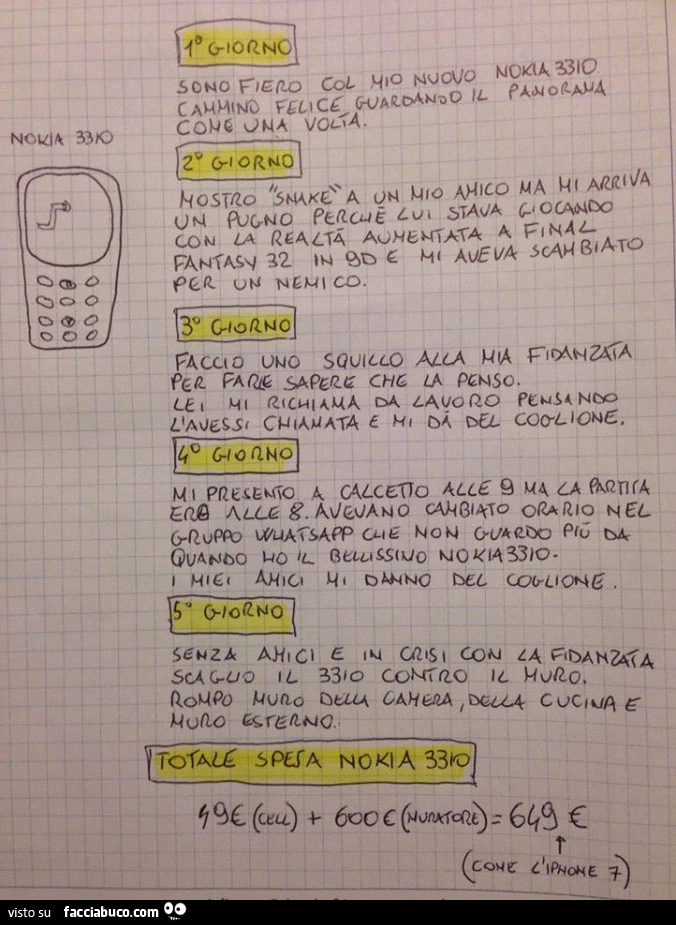 1° GIORNO
SONO FIERO COL MIO NUOVO NOKIA 3310
CAMMINO FELICE GUARDANDO IL PANORAMA
COME UNA VOLTA.
NOKIA 3310
2° GIORNO
MOSTRO "SNAKE" A UN MIO AMICO MA MI ARRIVA
UN PUGNO PERCHÉ LUI STAVA GIOCANDO
CON LA REALTÀ AUMENTATA A FINAL
FANTASY 32 IN 9D E MI AVEVA SCAMBIATO
PER UN NEMICO.
3° GIORNO
FACCIO UNO SQUILLO ALLA MIA FIDANZATA
PER FARLE SAPERE CHE LA PENSO.
LEI MI RICHIAMA DA LAVORO PENSANDO
L'AVESSI CHIAMATA E MI DÀ DEL COGLIONE.
4° GIORNO
MI PRESENTO A CALCETTO ALLE 9 MA LA PARTITA
ERA ALLE 8. AVEVANO CAMBIATO ORARIO NEL
GRUPPO WHATSAPP CHE NON GUARDO PIÙ DA
QUANDO HO IL BELLISSIMO NOKIA 3310.
I MIEI AMICI MI DANNO DEL COGLIONE.
5° GIORNO
SENZA AMICI E IN CRISI CON LA FIDANZATA
SCAGLIO IL 3310 CONTRO IL MURO.
ROMPO MURO DELLA CAMERA, DELLA CUCINA E
MURO ESTERNO.
TOTALE SPESA NOKIA 3310
49€ (CELL) + 600€ (MURATORE) = 649 €
↑
(COME L'IPHONE 7)
visto su facciabuco.com